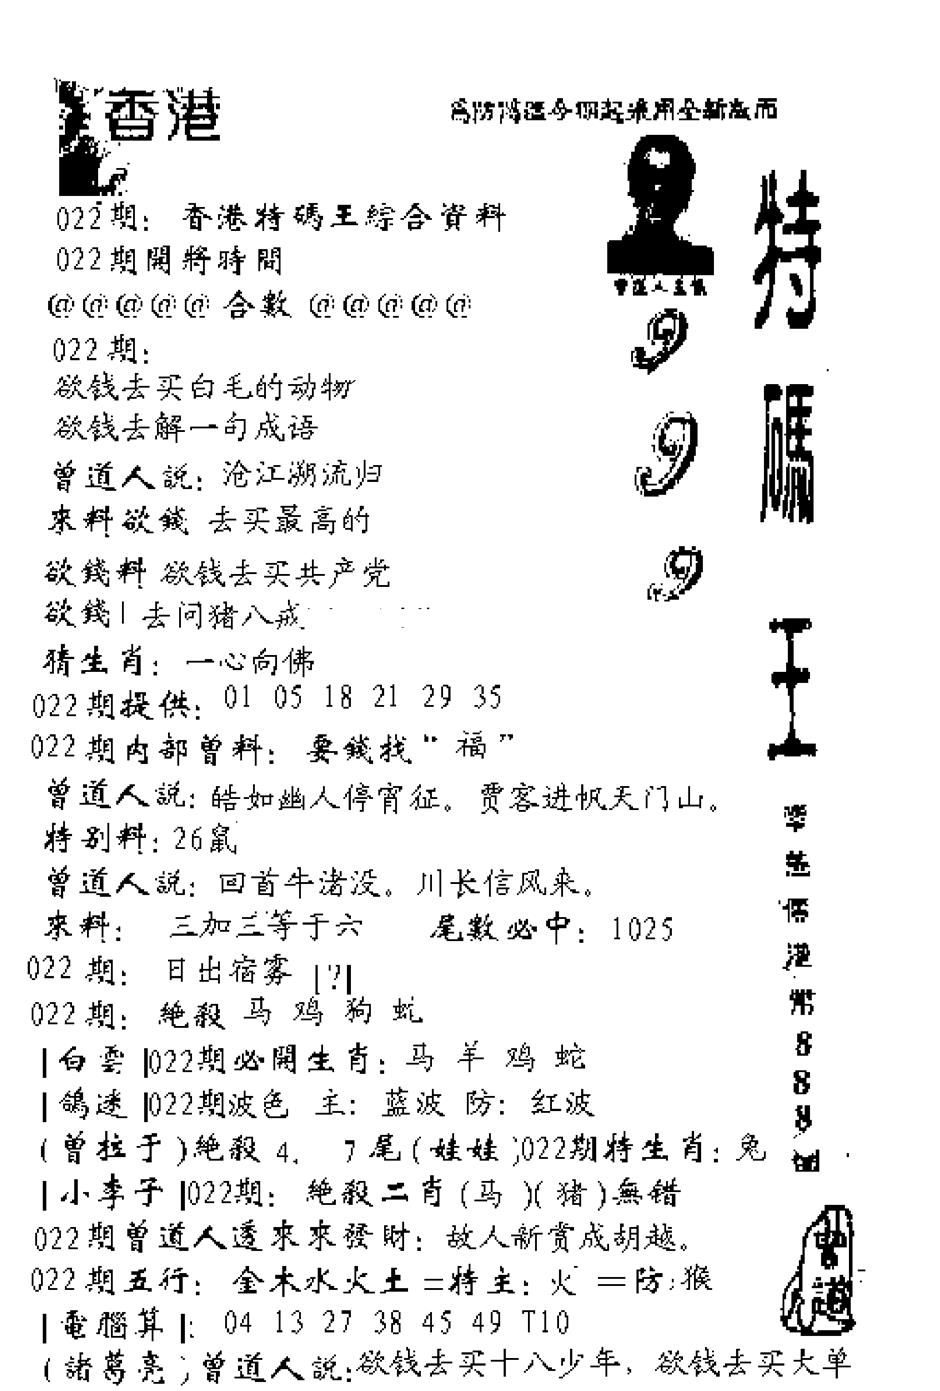 香港
為防濫今期起採用全新版面
022期：香港特碼王綜合資料
022期開將時間
@@@@@合數@@@@@
022期：
欲钱去买白毛的动物
欲钱去解一句成语
曾道人説：沧江溯流归
來料欲錢 去买最高的
欲錢料 欲钱去买共产党
欲錢| 去问猪八戒
猜生肖：一心向佛
022期提供：01 05 18 21 29 35
022期内部曾料：要錢找“福”
曾道人説：皓如幽人停宵征。贾客进帆天门山。
特别料：26鼠
曾道人説：回首牛渚没。川长信风来。
來料：三加三等于六 尾數必中：1025
022期：日出宿雾 |?|
022期：絶殺 马 鸡 狗 蛇
|白雲|022期必開生肖：马 羊 鸡 蛇
|鴿迷|022期波色 主：蓝波 防：红波
(曾拉于)絶殺 4. 7尾(娃娃)022期特生肖：兔
|小李子|022期：絶殺二肖(马)(猪)無错
022期曾道人透來來發財：故人新赏成胡越。
022期五行：金木水火土=特主：火=防：猴
|電腦算|：04 13 27 38 45 49 T10
(諸葛亮)曾道人説：欲钱去买十八少年，欲钱去买大单
曾道人
999
特碼王
港幣888
曾道